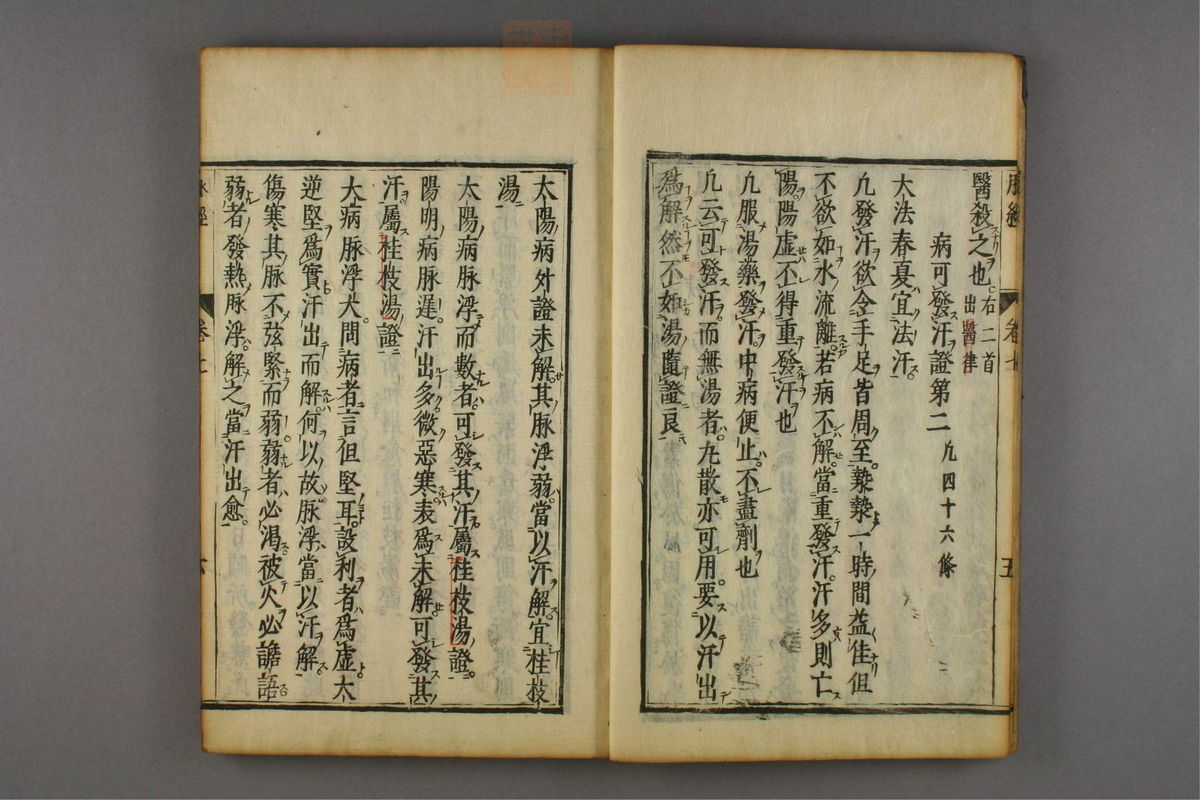 醫殺之也右二首出醫律
病可發汗證第二 凡四十六條
大法春夏宜法汗
凡發汗欲令手足皆周至漐漐一時間益佳但
不欲如水流離若病不解當重發汗汗多則亡
陽陽虛不得重發汗也
凡服湯藥發汗中病便止不盡劑也
凡云可發汗而無湯者丸散亦可用要以汗出
爲解然不如湯隨證良
脉經 卷七 五
太陽病外證未解其脉浮弱當以汗解宜桂枝
湯
太陽病脉浮而數者可發其汗屬桂枝湯證
陽明病脉遲汗出多微惡寒表爲未解可發其
汗屬桂枝湯證
大病脉浮大問病者言但堅耳設利者爲虛大
逆堅爲實汗出而解何以故脉浮當以汗解
傷寒其脉不弦緊而弱弱者必渴被火必譫語
弱者發熱脉浮解之當汗出愈